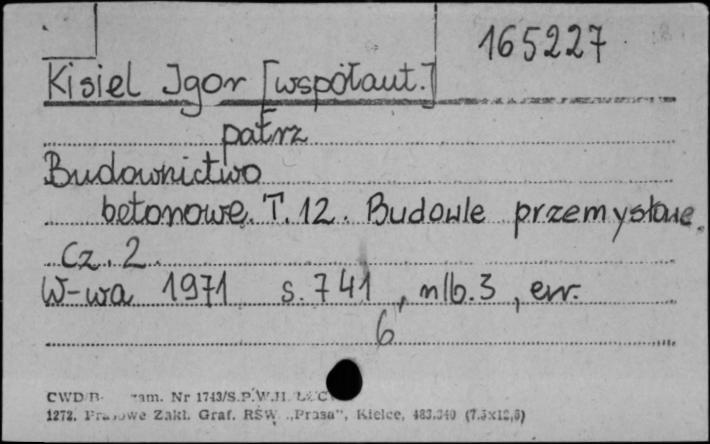 165227
Kisiel Igor [współaut.]
patrz
Budownictwo
betonowe. T. 12. Budowle przemysłowe.
Cz. 2.
W-wa 1971 s. 741, nlb. 3, err.
6
CWD zam. Nr 1743/S.P.W.H.
1272. Prasowe Zakł. Graf. RSW „Prasa”, Kielce, 483.340 (7,5x12,5)